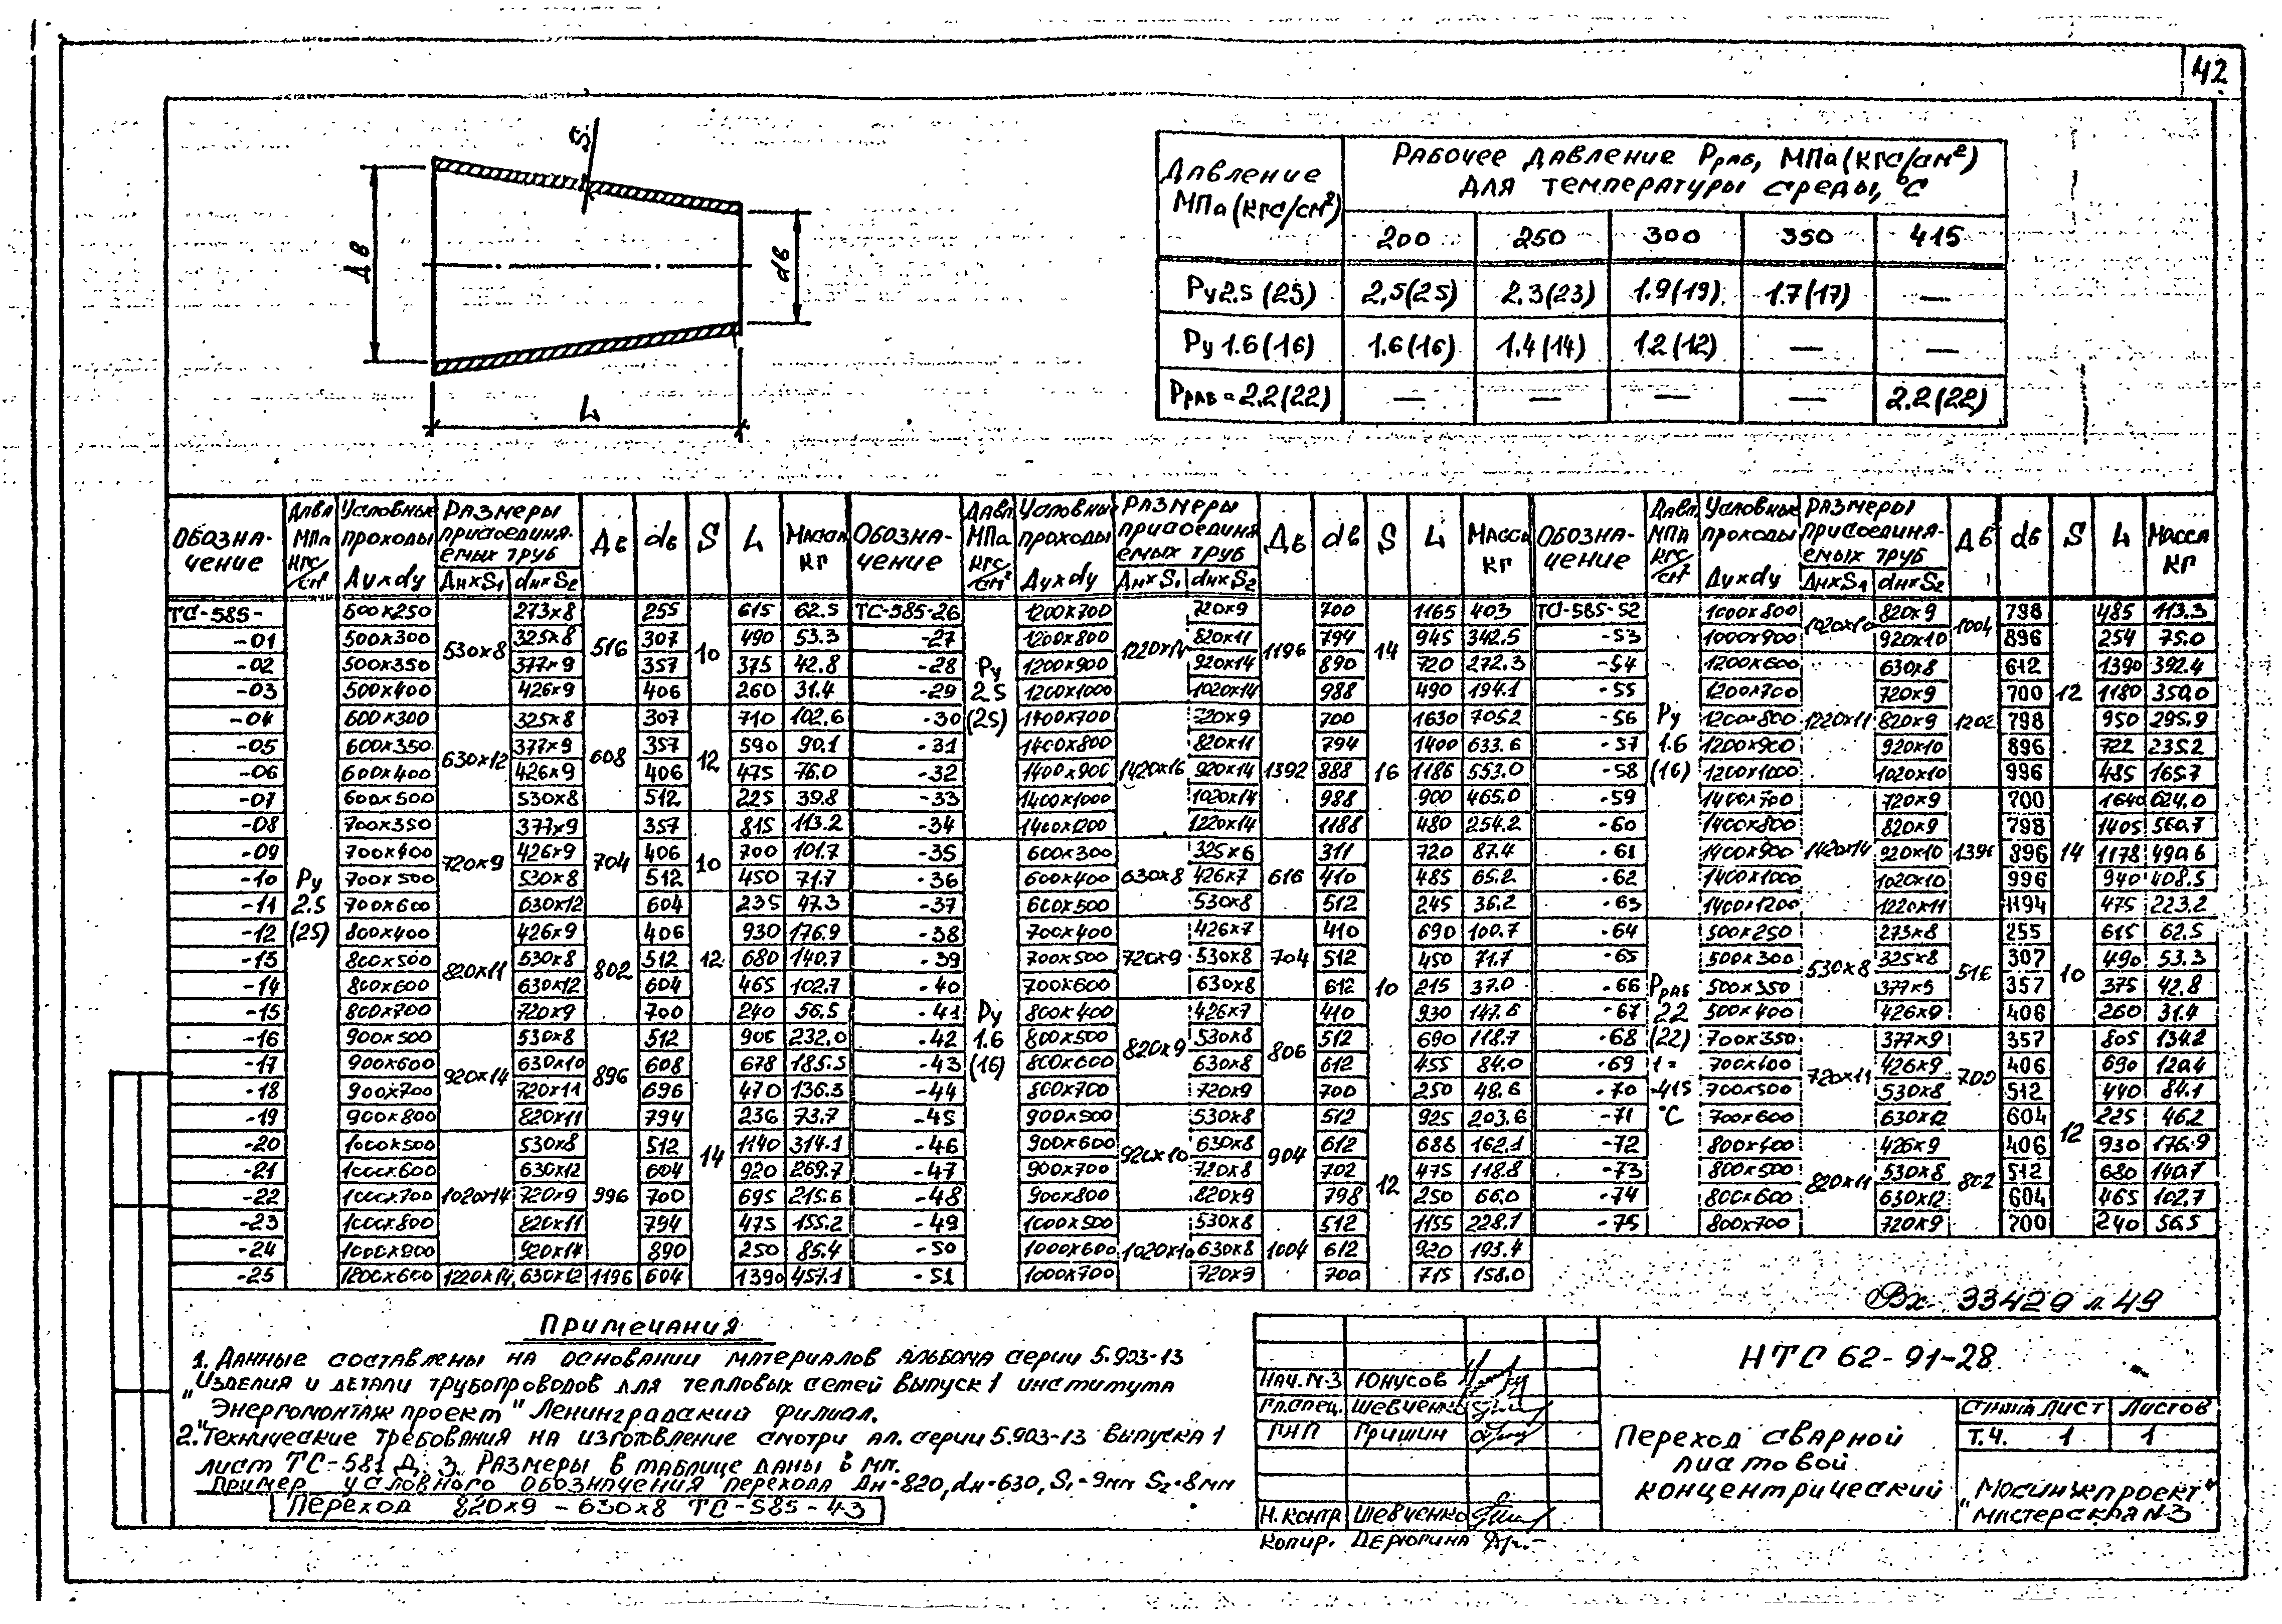 42
S
Дв
dв
L
Давление МПа (кгс/см²) | Рабочее давление Рраб, МПа (кгс/см²) для температуры среды, °С
200 | 250 | 300 | 350 | 415
Ру 2.5 (25) | 2.5(25) | 2.3(23) | 1.9(19) | 1.7(17) | —
Ру 1.6 (16) | 1.6(16) | 1.4(14) | 1.2(12) | — | —
Рраб = 2.2(22) | — | — | — | — | 2.2(22)
Обозначение | Давл МПа кгс/см² | Условные проходы Ду×dу | Размеры присоединяемых труб Дн×S1 | dн×S2 | Дв | dв | S | L | Масса кг
ТС-585- | Ру 2.5 (25) | 500×250 | 530×8 | 273×8 | 516 | 255 | 10 | 615 | 62.5
-01 | 500×300 | 325×8 | 307 | 490 | 53.3
-02 | 500×350 | 377×9 | 357 | 375 | 42.8
-03 | 500×400 | 426×9 | 406 | 260 | 31.4
-04 | 600×300 | 630×12 | 325×8 | 608 | 307 | 12 | 710 | 102.6
-05 | 600×350 | 377×9 | 357 | 590 | 90.1
-06 | 600×400 | 426×9 | 406 | 475 | 76.0
-07 | 600×500 | 530×8 | 512 | 225 | 39.8
-08 | 700×350 | 720×9 | 377×9 | 704 | 357 | 10 | 815 | 113.2
-09 | 700×400 | 426×9 | 406 | 700 | 101.7
-10 | 700×500 | 530×8 | 512 | 450 | 71.7
-11 | 700×600 | 630×12 | 604 | 235 | 47.3
-12 | 800×400 | 820×11 | 426×9 | 802 | 406 | 12 | 930 | 176.9
-13 | 800×500 | 530×8 | 512 | 680 | 140.7
-14 | 800×600 | 630×12 | 604 | 465 | 102.7
-15 | 800×700 | 720×9 | 700 | 240 | 56.5
-16 | 900×500 | 920×14 | 530×8 | 896 | 512 | 14 | 905 | 232.0
-17 | 900×600 | 630×10 | 608 | 678 | 185.5
-18 | 900×700 | 720×11 | 696 | 470 | 136.3
-19 | 900×800 | 820×11 | 794 | 236 | 73.7
-20 | 1000×500 | 1020×14 | 530×8 | 996 | 512 | 1140 | 314.1
-21 | 1000×600 | 630×12 | 604 | 920 | 269.7
-22 | 1000×700 | 720×9 | 700 | 695 | 215.6
-23 | 1000×800 | 820×11 | 794 | 475 | 155.2
-24 | 1000×900 | 920×14 | 890 | 250 | 85.4
-25 | 1200×600 | 1220×14 | 630×12 | 1196 | 604 | 1390 | 457.1
Обозначение | Давл. МПа кгс/см² | Условные проходы Ду×dу | Размеры присоединяемых труб Дн×S1 | dн×S2 | Дв | dв | S | L | Масса кг
ТС-585-26 | Ру 2.5 (25) | 1200×700 | 1220×14 | 720×9 | 1196 | 700 | 14 | 1165 | 403
-27 | 1200×800 | 820×11 | 794 | 945 | 342.5
-28 | 1200×900 | 920×14 | 890 | 720 | 272.3
-29 | 1200×1000 | 1020×14 | 988 | 490 | 194.1
-30 | 1400×700 | 1420×16 | 720×9 | 1392 | 700 | 16 | 1630 | 705.2
-31 | 1400×800 | 820×11 | 794 | 1400 | 633.6
-32 | 1400×900 | 920×14 | 888 | 1186 | 553.0
-33 | 1400×1000 | 1020×14 | 988 | 900 | 465.0
-34 | 1400×1200 | 1220×14 | 1188 | 480 | 254.2
-35 | Ру 1.6 (16) | 600×300 | 630×8 | 325×6 | 616 | 311 | 10 | 720 | 87.4
-36 | 600×400 | 426×7 | 410 | 485 | 65.2
-37 | 600×500 | 530×8 | 512 | 245 | 36.2
-38 | 700×400 | 720×9 | 426×7 | 704 | 410 | 690 | 100.7
-39 | 700×500 | 530×8 | 512 | 450 | 71.7
-40 | 700×600 | 630×8 | 612 | 215 | 37.0
-41 | 800×400 | 820×9 | 426×7 | 806 | 410 | 930 | 147.6
-42 | 800×500 | 530×8 | 512 | 690 | 118.7
-43 | 800×600 | 630×8 | 612 | 455 | 84.0
-44 | 800×700 | 720×9 | 700 | 250 | 48.6
-45 | 900×500 | 920×10 | 530×8 | 904 | 512 | 12 | 925 | 203.6
-46 | 900×600 | 630×8 | 612 | 688 | 162.1
-47 | 900×700 | 720×8 | 702 | 475 | 118.8
-48 | 900×800 | 820×9 | 798 | 250 | 66.0
-49 | 1000×500 | 1020×10 | 530×8 | 1004 | 512 | 1155 | 228.1
-50 | 1000×600 | 630×8 | 612 | 920 | 193.4
-51 | 1000×700 | 720×9 | 700 | 715 | 158.0
Обозначение | Давл. МПа кгс/см² | Условные проходы Ду×dу | Размеры присоединяемых труб Дн×S1 | dн×S2 | Дв | dв | S | L | Масса кг
ТС-585-52 | Ру 1.6 (16) | 1000×800 | 1020×10 | 820×9 | 1004 | 798 | 12 | 485 | 113.3
-53 | 1000×900 | 920×10 | 896 | 254 | 75.0
-54 | 1200×600 | 1220×11 | 630×8 | 1202 | 612 | 1390 | 392.4
-55 | 1200×700 | 720×9 | 700 | 1180 | 350.0
-56 | 1200×800 | 820×9 | 798 | 950 | 295.9
-57 | 1200×900 | 920×10 | 896 | 722 | 235.2
-58 | 1200×1000 | 1020×10 | 996 | 485 | 165.7
-59 | 1400×700 | 1420×14 | 720×9 | 1396 | 700 | 14 | 1640 | 624.0
-60 | 1400×800 | 820×9 | 798 | 1405 | 560.7
-61 | 1400×900 | 920×10 | 896 | 1178 | 490.6
-62 | 1400×1000 | 1020×10 | 996 | 940 | 408.5
-63 | 1400×1200 | 1220×11 | 1194 | 475 | 223.2
-64 | Рраб 22 (22) t= 415 °С | 500×250 | 530×8 | 273×8 | 516 | 255 | 10 | 615 | 62.5
-65 | 500×300 | 325×8 | 307 | 490 | 53.3
-66 | 500×350 | 377×9 | 357 | 375 | 42.8
-67 | 500×400 | 426×9 | 406 | 260 | 31.4
-68 | 700×350 | 720×11 | 377×9 | 700 | 357 | 12 | 805 | 134.2
-69 | 700×400 | 426×9 | 406 | 690 | 120.4
-70 | 700×500 | 530×8 | 512 | 440 | 84.1
-71 | 700×600 | 630×12 | 604 | 225 | 46.2
-72 | 800×400 | 820×11 | 426×9 | 802 | 406 | 930 | 176.9
-73 | 800×500 | 530×8 | 512 | 680 | 140.7
-74 | 800×600 | 630×12 | 604 | 465 | 102.7
-75 | 800×700 | 720×9 | 700 | 240 | 56.5
Вх. 33429 л 49
Примечания
1. Данные составлены на основании материалов альбома серии 5.903-13
"Изделия и детали трубопроводов для тепловых сетей выпуск 1 института
"Энергомонтажпроект" Ленинградский филиал.
2. "Технические требования на изготовление смотри ал. серии 5.903-13 Выпуска 1
лист ТС-581 Д. 3. Размеры в таблице даны в мм.
Пример условного обозначения перехода Дн=820, dн=630, S1=9мм S2=8мм
Переход 820×9 – 630×8 ТС-585-43
Нач. М-3 Юнусов
Гл.спец. Шевченко
ГИП Гришин
Н. контр Шевченко
Копир. Дерюгина
НТС 62-91-28
Переход сварной
листовой
концентрический
Стадия Лист Листов
Т.Ч. 1 1
Мосинжпроект"
"Мастерская N-3